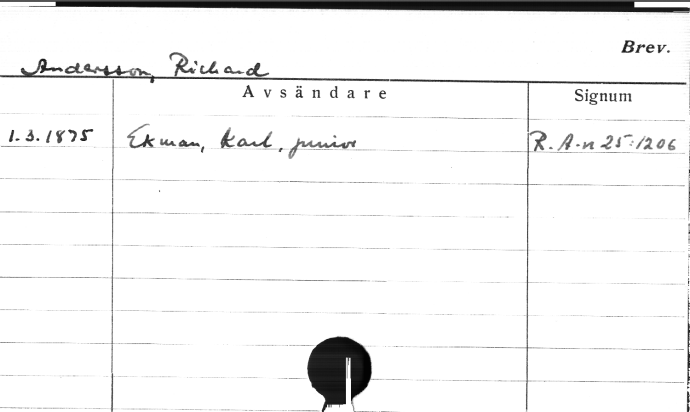 Brev.
Andersson, Richard
Avsändare Signum
1.3.1875 Ekman, Karl, junior R.A-n 25:1206